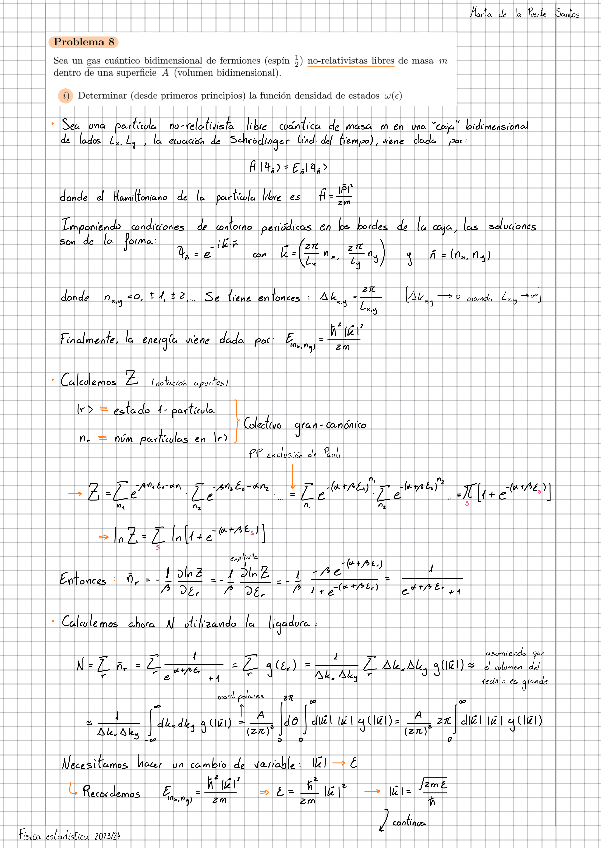 Marta de la Puente Santos
Problema 8
Sea un gas cuántico bidimensional de fermiones (espín 1/2) no-relativistas libres de masa m
dentro de una superficie A (volumen bidimensional).
i) Determinar (desde primeros principios) la función densidad de estados ω(ϵ)
· Sea una partícula no-relativista libre cuántica de masa m en una "caja" bidimensional
de lados Lx, Ly , la ecuación de Schrödinger (ind. del tiempo), viene dada por:
Ĥ |φn̄> = En̄ |φn̄>
donde el Hamiltoniano de la partícula libre es Ĥ = |p̄|²/2m
Imponiendo condiciones de contorno periódicas en los bordes de la caja, las soluciones
son de la forma: φn̄ = e^{-i k̄·r̄} con k̄ = (2π/Lx nx, 2π/Ly ny) y n̄ = (nx, ny)
donde nx,y = 0, ±1, ±2,... Se tiene entonces: Δkx,y = 2π/Lx,y [Δkx,y → 0 cuando Lx,y → ∞]
Finalmente, la energía viene dada por: E(nx,ny) = ħ²|k̄|²/2m
· Calculemos Z (notación apuntes)
|r> = estado 1-partícula
nr = núm partículas en |r>
Colectivo gran-canónico
PP exclusión de Pauli
→ Z = Σn₁ e^{-βn₁ε₁-αn₁} · Σn₂ e^{-βn₂ε₂-αn₂} ... = Σn₁ e^{-(α+βε₁)n₁} · Σn₂ e^{-(α+βε₂)n₂} ... = Πs [1 + e^{-(α+βεs)}]
⇒ ln Z = Σs ln[1 + e^{-(α+βεs)}]
explícita
Entonces: n̄r = -1/β ∂lnZ/∂εr = -1/β ∂lnZ/∂εr = -1/β · -βe^{-(α+βεr)}/(1+e^{-(α+βεr)}) = 1/(e^{α+βεr}+1)
· Calculemos ahora N utilizando la ligadura:
N = Σr n̄r = Σr 1/(e^{α+βεr}+1) = Σr g(εr) = 1/(Δkx Δky) Σr Δkx Δky g(|k̄|) ≈
asumiendo que
el volumen del
recinto es grande
coord. polares
≈ 1/(Δkx Δky) ∫_{-∞}^{∞} dkx dky g(|k̄|) = A/(2π)² ∫_0^{2π} dθ ∫_0^{∞} d|k̄| |k̄| g(|k̄|) = A/(2π)² 2π ∫_0^{∞} d|k̄| |k̄| g(|k̄|)
Necesitamos hacer un cambio de variable: |k̄| → ε
↳ Recordemos E(nx,ny) = ħ²|k̄|²/2m ⇒ ε = ħ²/2m |k̄|² → |k̄| = √(2mε)/ħ
continua
Física estadística 2023/24